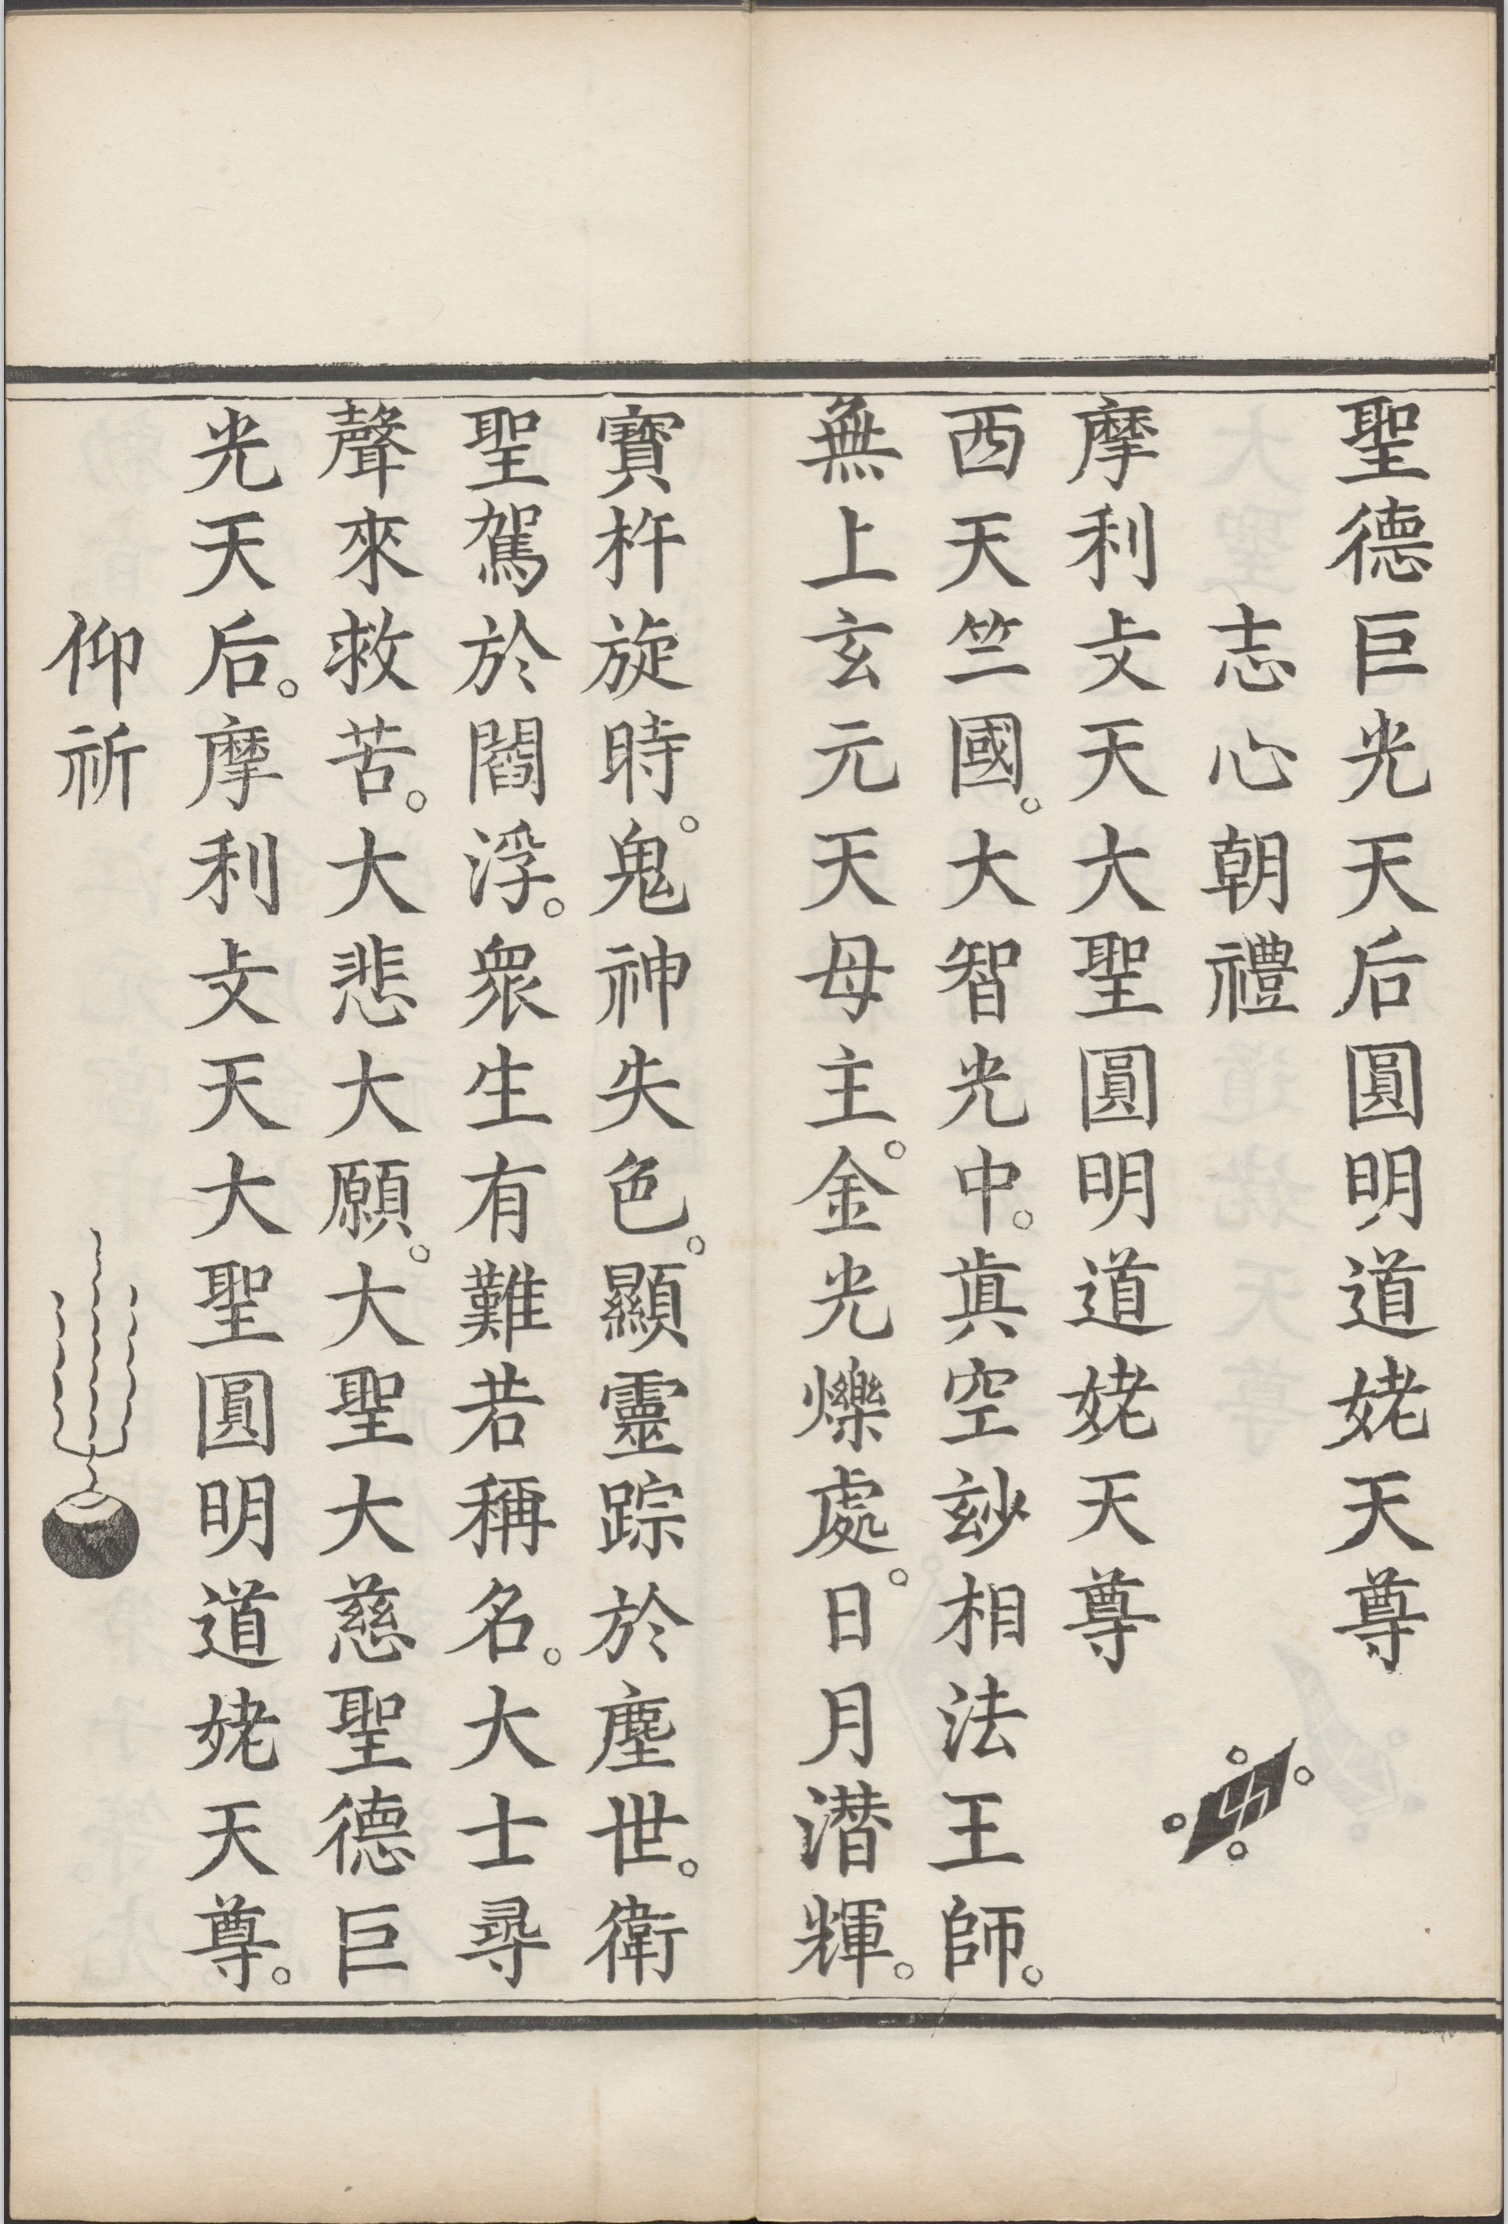 聖德巨光天后圓明道姥天尊
志心朝禮
摩利攴天大聖圓明道姥天尊
西天竺國。大智光中。眞空玅相法王師。
無上玄元天母主。金光爍處。日月潛輝。
寶杵旋時。鬼神失色。顯靈踪於塵世。衛
聖駕於閻浮。衆生有難若稱名。大士尋
聲來救苦。大悲大願。大聖大慈聖德巨
光天后。摩利攴天大聖圓明道姥天尊。
仰祈